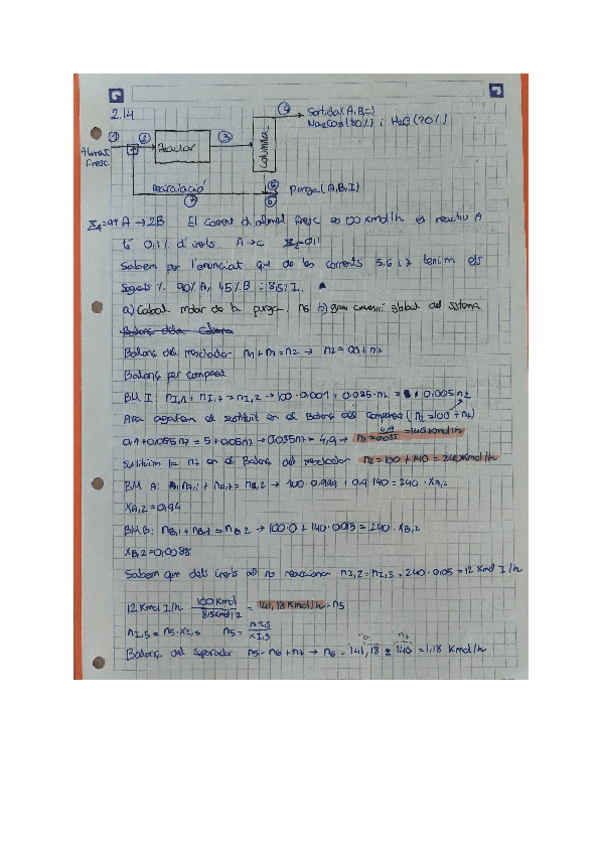 2.14
④ Sortida (A,B,C)
Na2CO3 (30%) i H2O (70%)
① ② Reactor ③ columna
Aliment Fresc
Recirculació ⑤ Purga (A,B,I)
⑦ ⑥
A → 2B El corrent d'aliment fresc es 100 Kmol/h es reactiu A
té 0,1% d'inerts A → C
Sabem per l'enunciat que de les corrents 5,6 i 7 tenim els
següents %. 90% A, 1,5% B i 8,5% I.
a) Cabal molar de la purga. n6 b) grau conversió global del sistema
Balanç de la Columna
Balanç del mesclador n1 + n7 = n2 → n2 = 100 + n7
Balanç per component
BM I: nI,1 + nI,7 = nI,2 → 100·0.001 + 0.085·n7 = 0.005 n2
Ara agafem i substituïm en el Balanç del component (n2 = 100 + n7)
0,1 + 0,085 n7 = 5 + 0,05 n7 → 0,035 n7 = 4,9 → n7 = 4,9/0,035 = 140 Kmol/h
Substituïm la n7 en el Balanç del mesclador n2 = 100 + 140 = 240 Kmol/h
BM A: nA,1 + nA,7 = nA,2 → 100·0.999 + 0.9·140 = 240·XA,2
XA,2 = 0,94
BM B: nB,1 + nB,7 = nB,2 → 100·0 + 140·0.015 = 240·XB,2
XB,2 = 0,0088
Sabem que dels inerts no reaccionen nI,2 = nI,3 = 240·0.05 = 12 Kmol I/h
12 Kmol I/h 100 Kmol / 8,5 Kmol I = 141,18 Kmol/h = n5
nI,5 = n5·XI,5 n5 = nI,5 / XI,5
Balanç del separador n5 = n6 + n7 → n6 = 141,18 - 140 = 1,18 Kmol/h